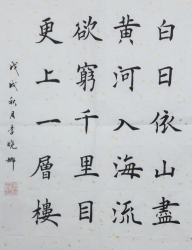 白日依山盡
黃河入海流
欲窮千里目
更上一層樓
戊戌秋月李曉娜